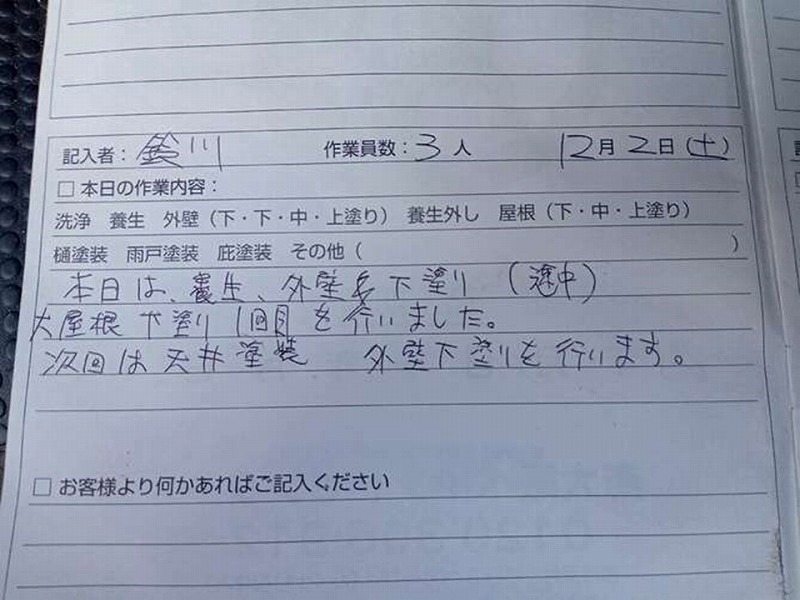 記入者：鈴川 作業員数：3人 12月2日（土）
□ 本日の作業内容：
洗浄 養生 外壁（下・下・中・上塗り） 養生外し 屋根（下・中・上塗り）
樋塗装 雨戸塗装 庇塗装 その他（ ）
本日は、養生、外壁 下塗り（途中）
大屋根 下塗り 1回目を行いました。
次回は天井塗装 外壁下塗りを行います。
□ お客様より何かあればご記入ください